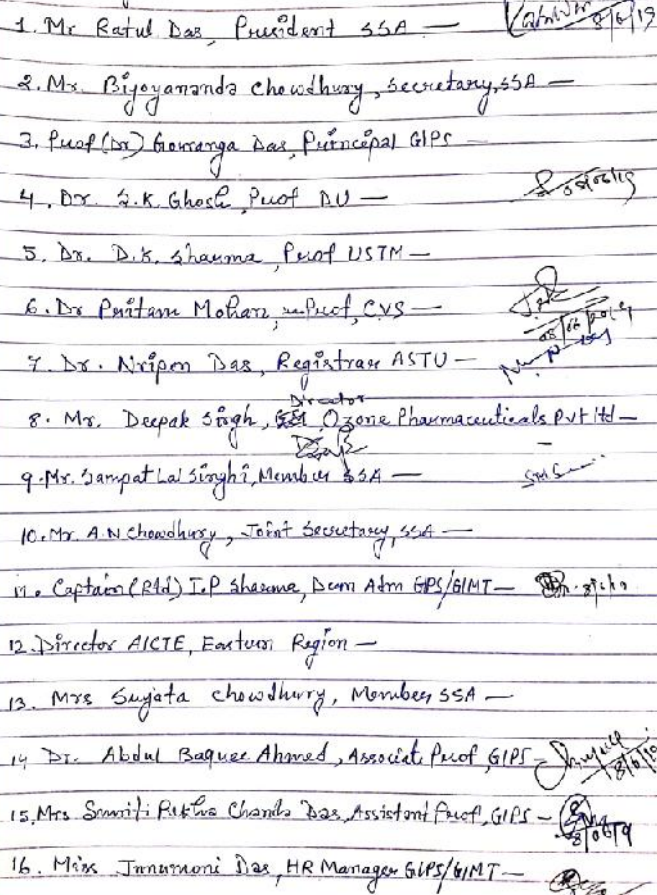 1. Mr Ratul Das, President SSA — 8/6/19
2. Mr. Bijoyananda Chowdhury, Secretary, SSA —
3. Prof (Dr) Gouranga Das, Principal GIPS —
4. Dr. S.K. Ghosh, Prof DU —
5. Dr. D.K. Sharma, Prof USTM —
6. Dr Pritam Mohan, Prof, CVS —
08/06/2019
7. Dr. Nripen Das, Registrar ASTU —
Director
8. Mr. Deepak Singh, Ozone Pharmaceuticals Pvt ltd —
9. Mr. Sampat Lal Singhi, Member SSA — SMS
10. Mr. A.N Chowdhury, Joint Secretary, SSA —
11. Captain (Rtd) I.P Sharma, Dean Adm GIPS/GIMT —
12. Director AICTE, Eastern Region —
13. Mrs Sujata Chowdhury, Member SSA —
14 Dr. Abdul Baquee Ahmed, Associate Prof, GIPS — 8/6/19
15. Mrs Smriti Rekha Chanda Das, Assistant Prof, GIPS — 8/06/19
16. Miss Jnnumoni Das, HR Manager GIPS/GIMT —